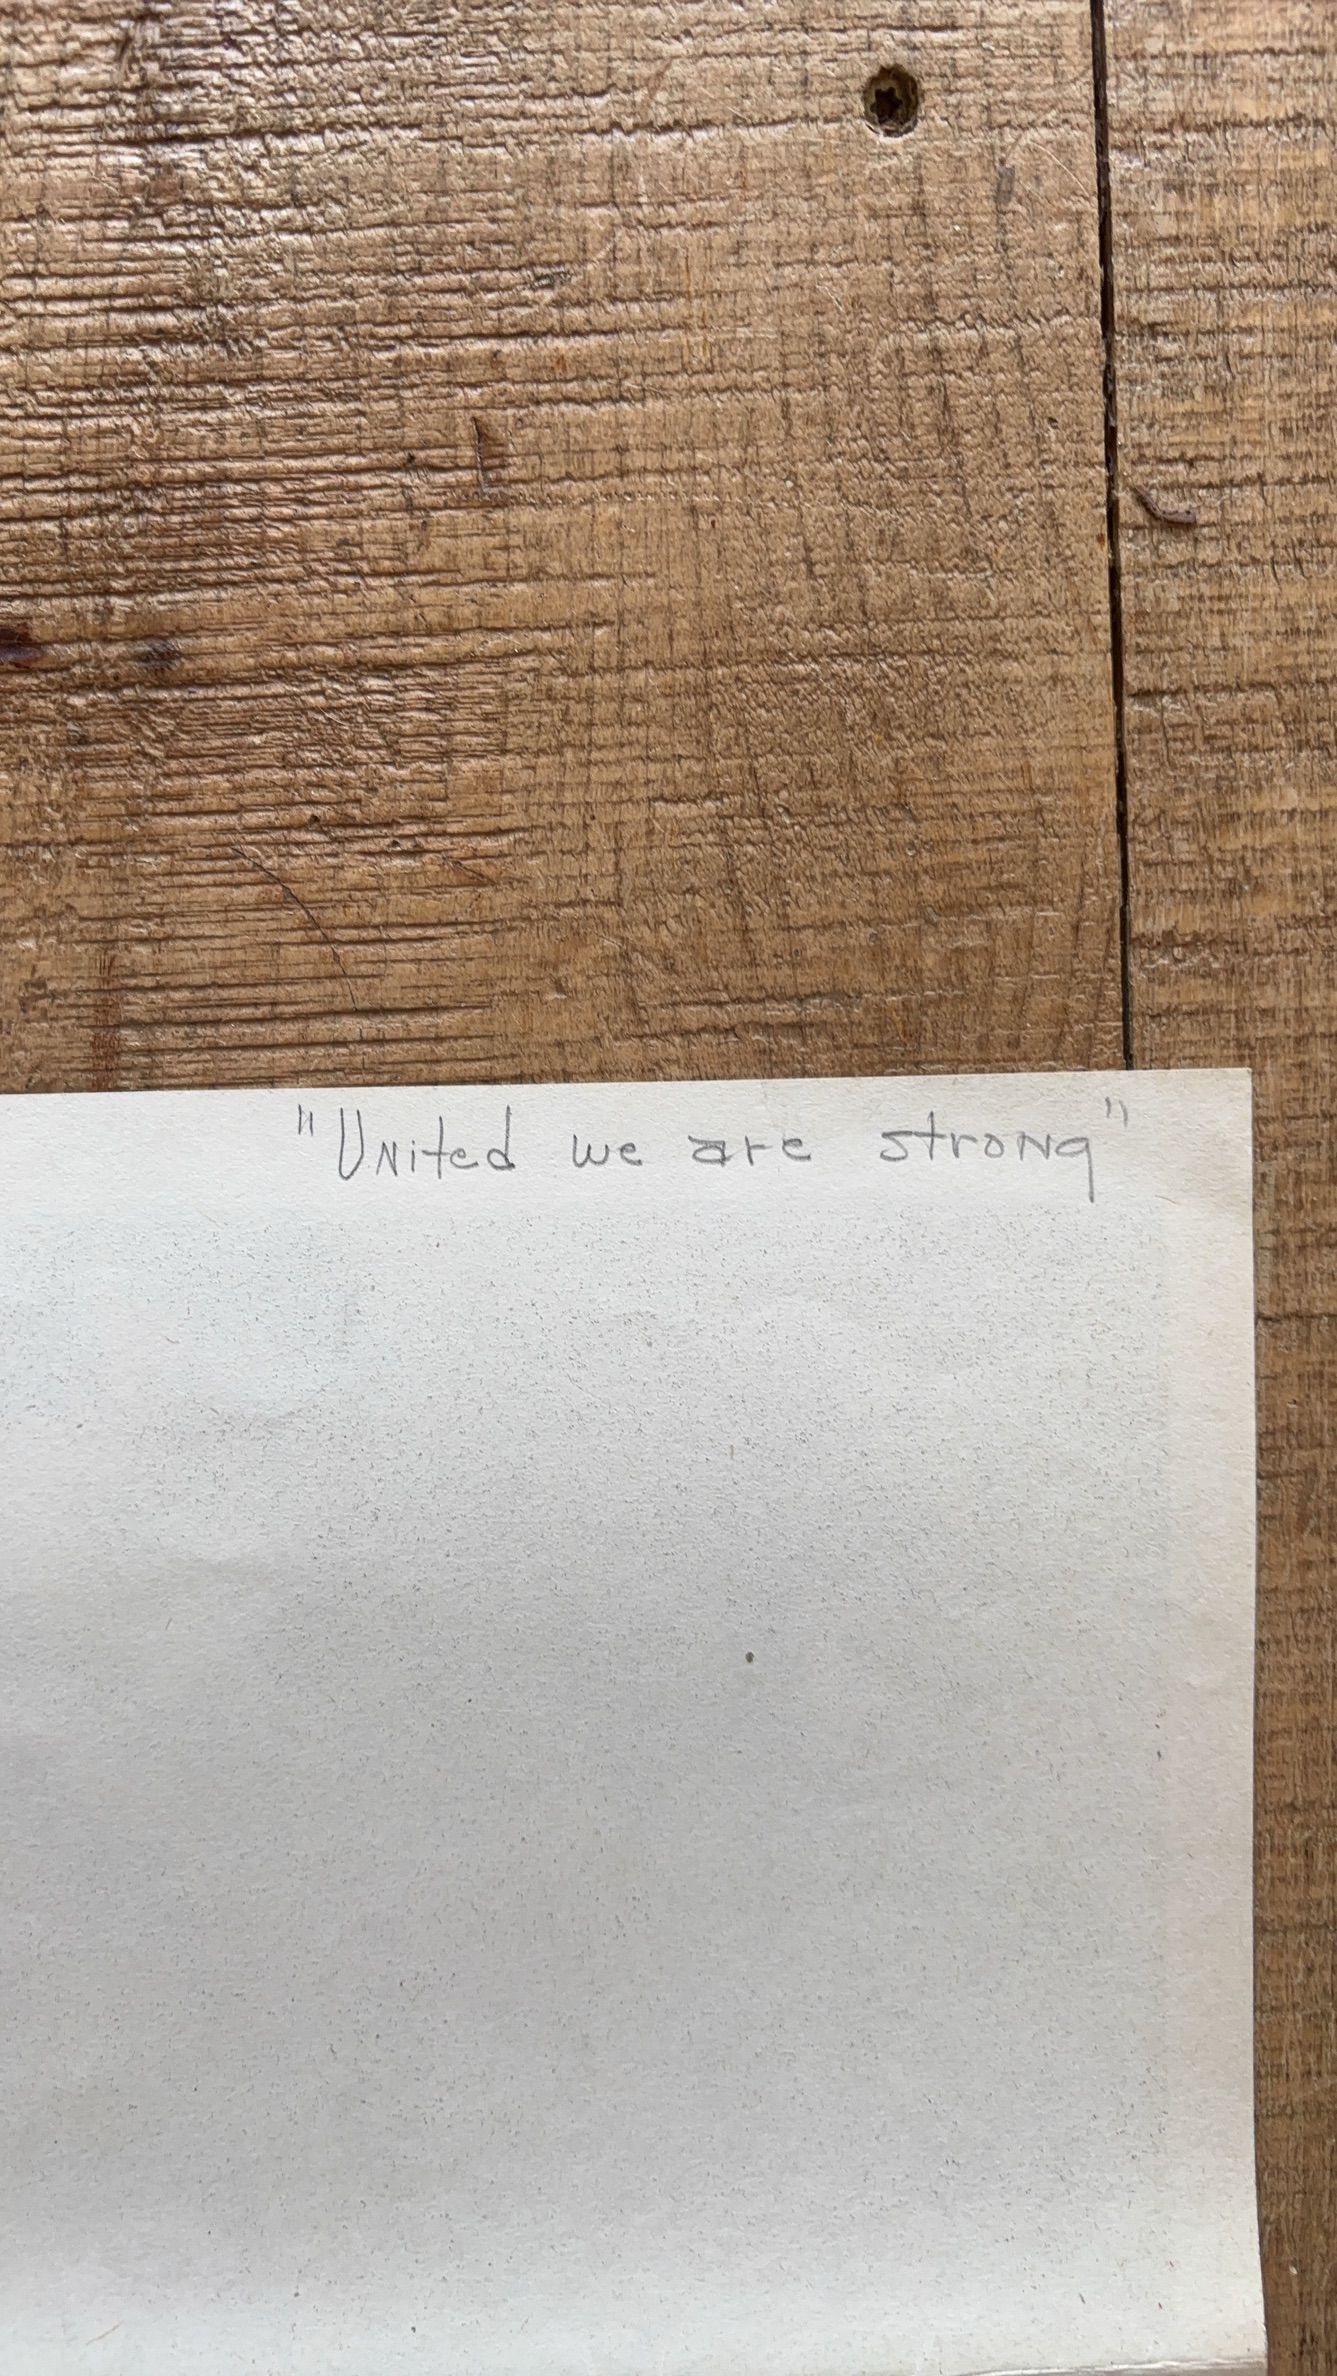 "United we are strong"